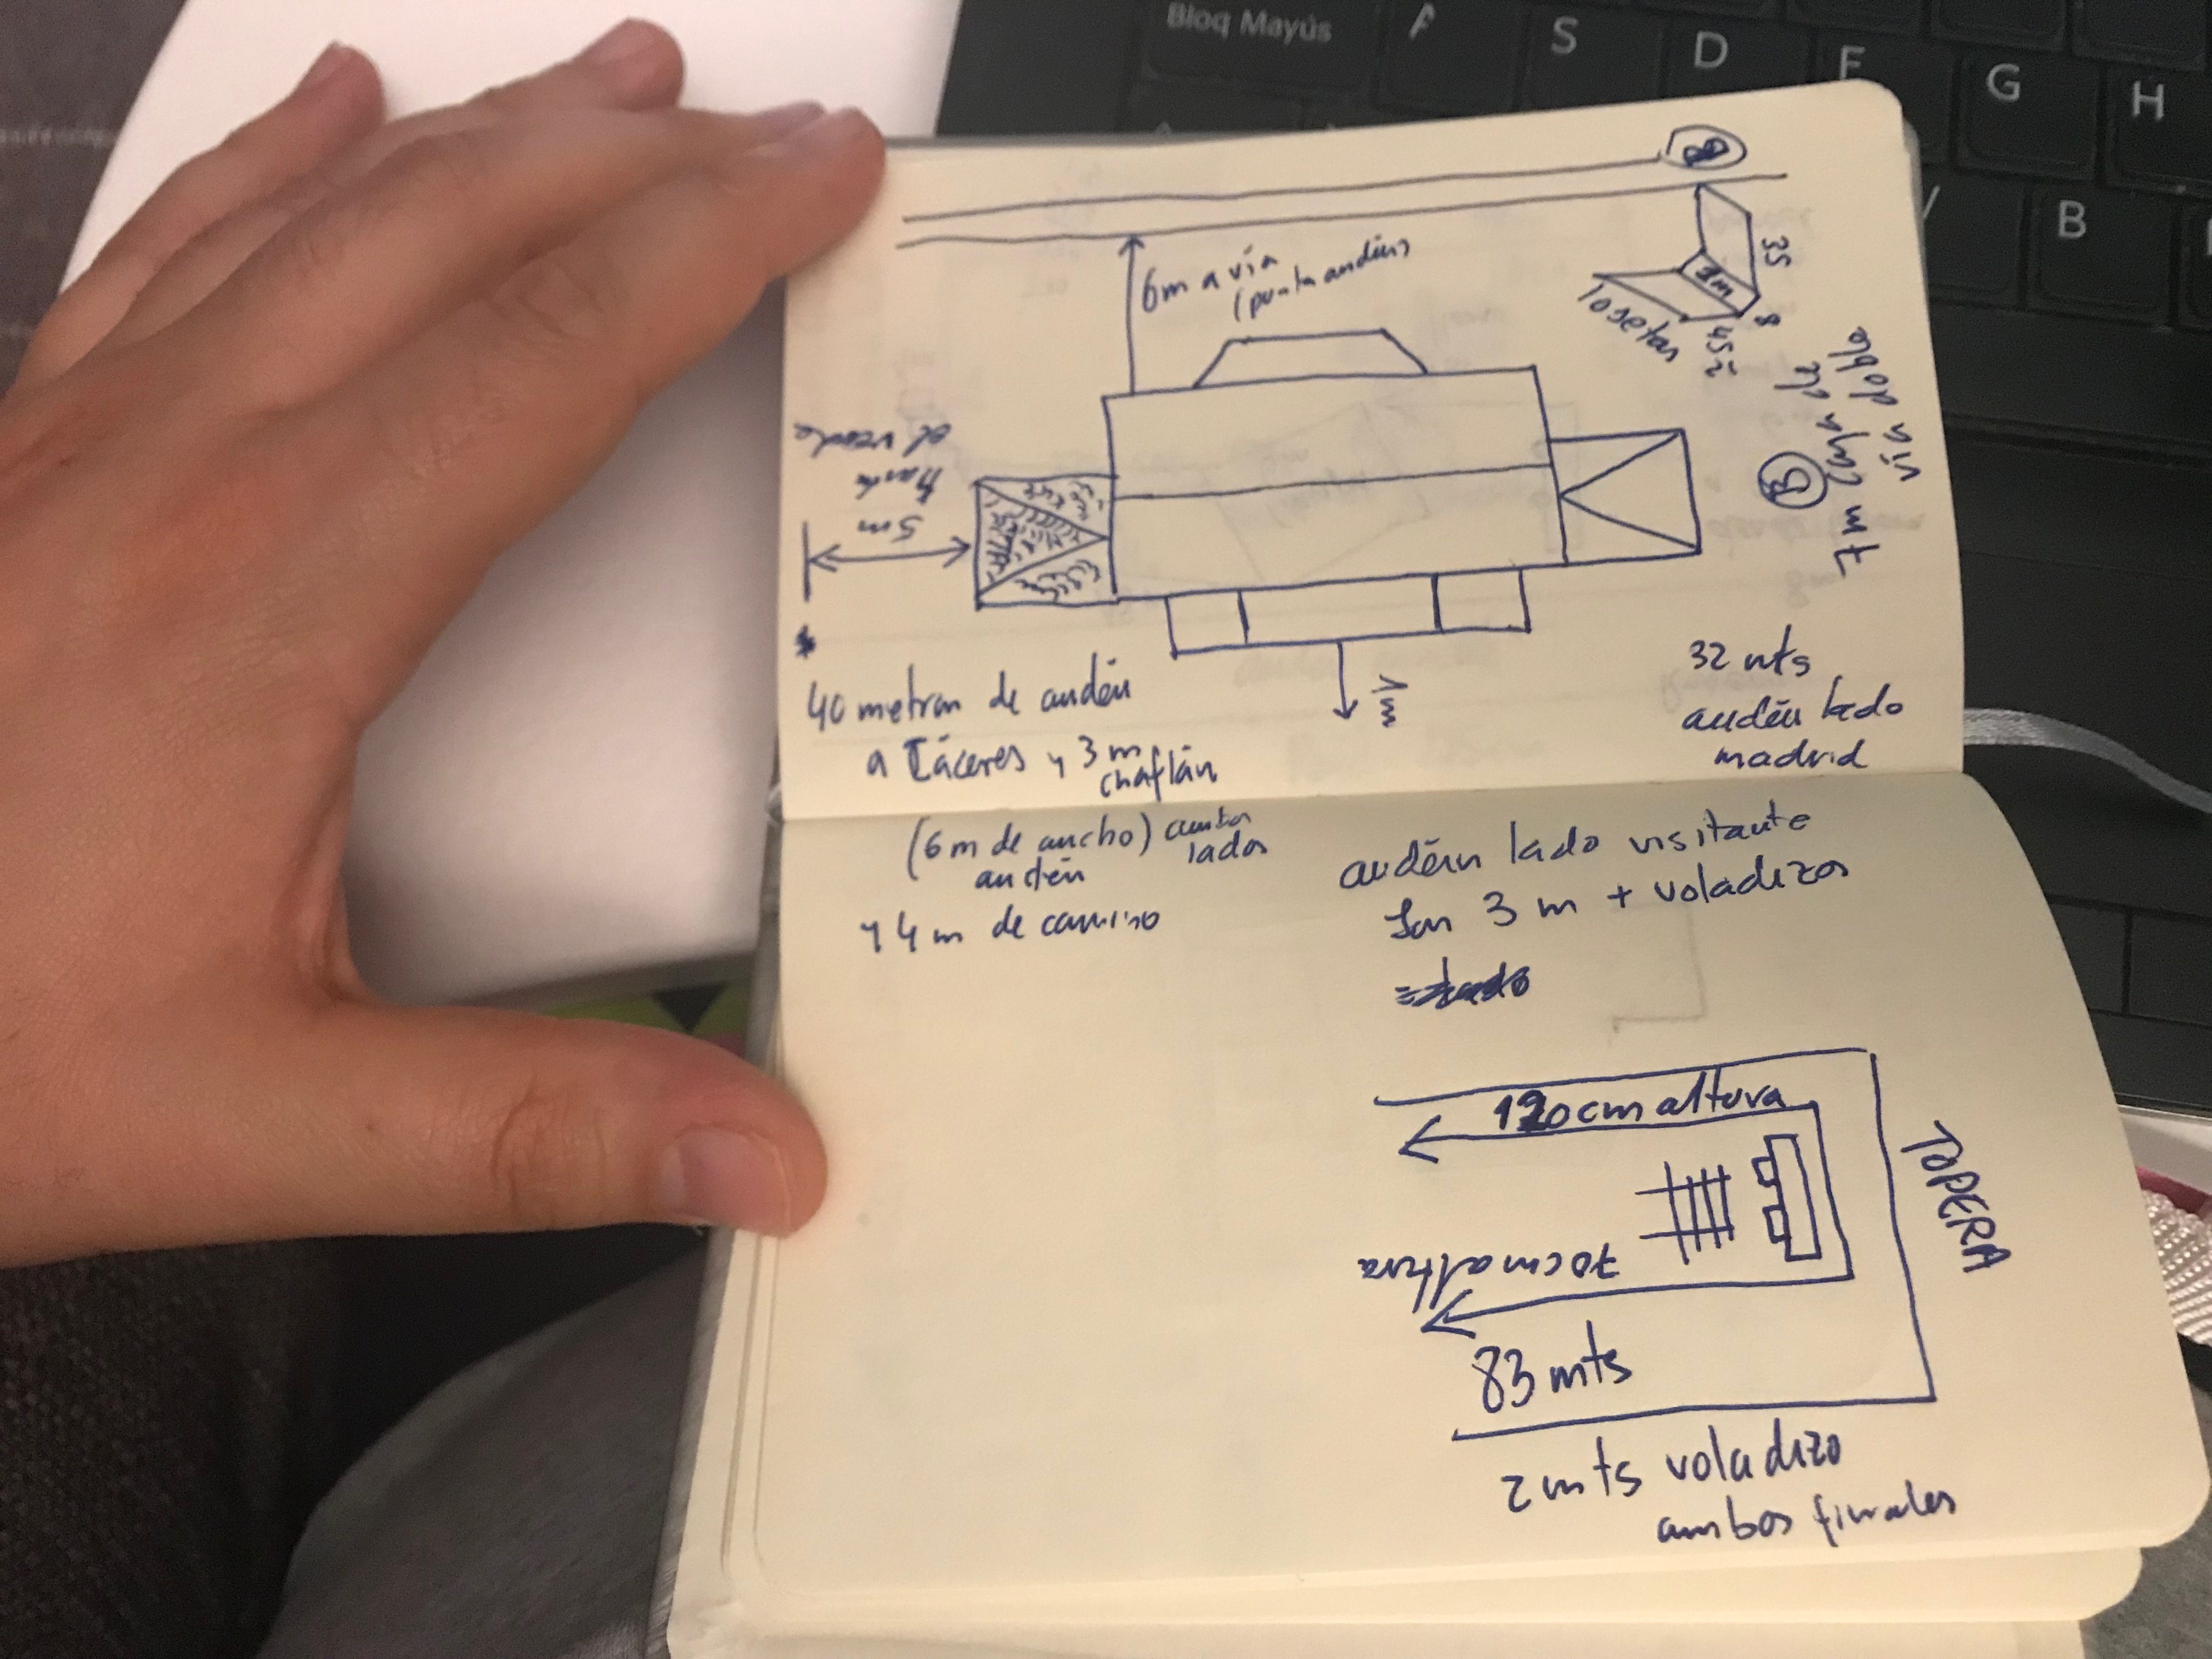 Bloq Mayús
A
S
D
F
G
H
V
B
6m a vía
(punta andén)
35
1m
8
45
losetas
vía doble
7m caja de
el verde
hasta
5m
1m
32 mts
andén lado
madrid
40 metros de andén
a Cáceres y 3 m
chaflán
(6 m de ancho) ambos
andén lados
y 4 m de camino
andén lado visitante
son 3 m + voladizos
120cm altura
TOPERA
70cm altura
83 mts
2 mts voladizo
ambos finales